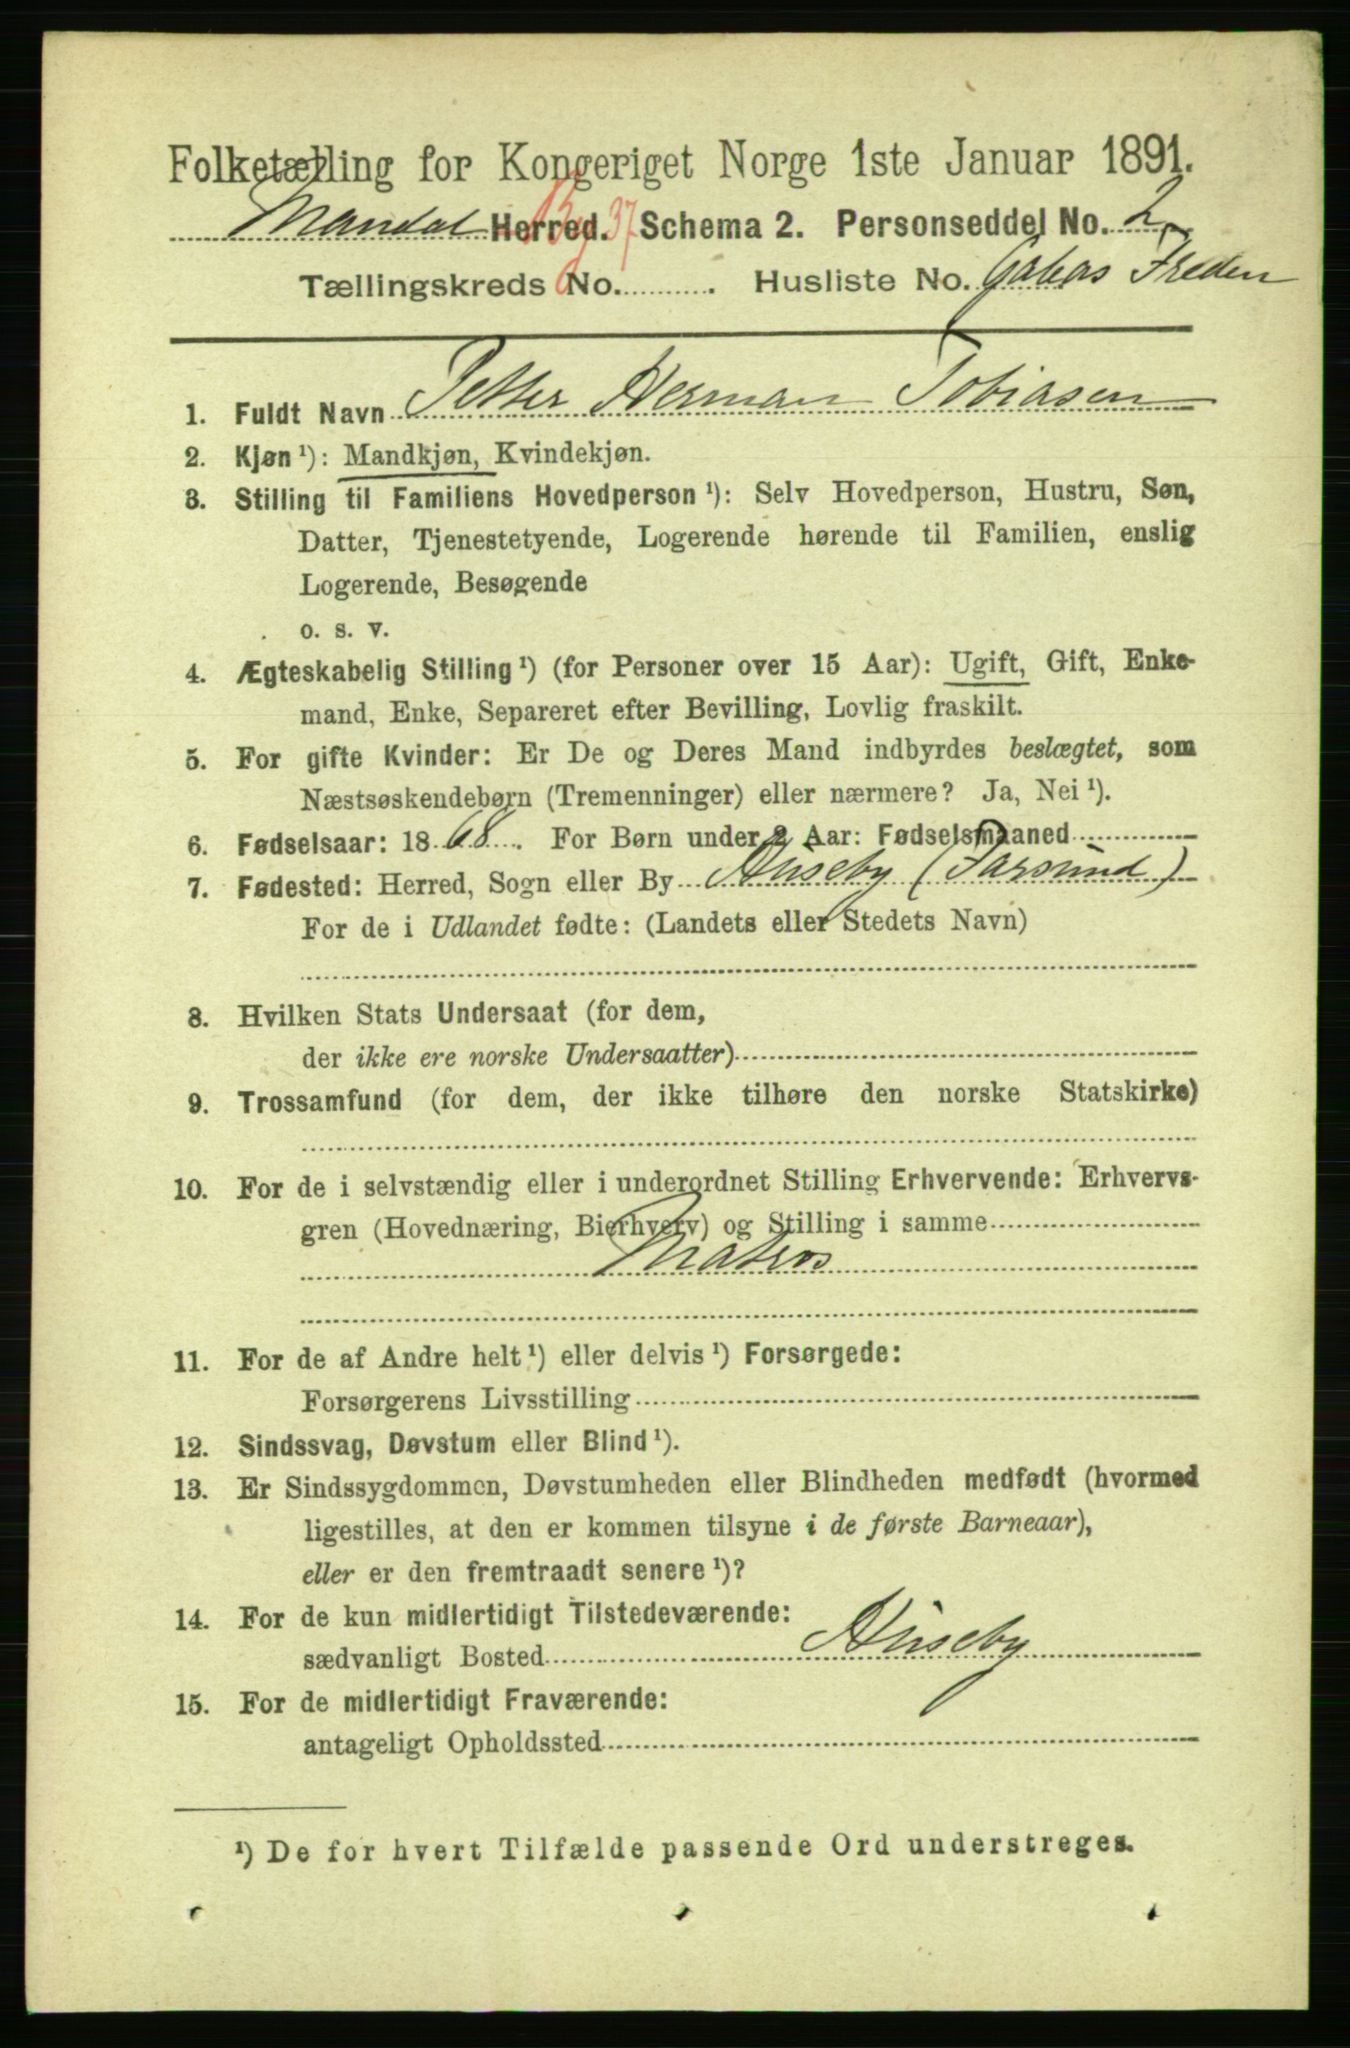 Folketælling for Kongeriget Norge 1ste Januar 1891.
Mandal Herred. By 37 Schema 2. Personseddel No. 2
Tællingskreds No. .......... Husliste No. Freden
1. Fuldt Navn Petter Herman Tobiasen
2. Kjøn ¹): Mandkjøn, Kvindekjøn.
3. Stilling til Familiens Hovedperson ¹): Selv Hovedperson, Hustru, Søn,
Datter, Tjenestetyende, Logerende hørende til Familien, enslig
Logerende, Besøgende
o. s. v.
4. Ægteskabelig Stilling ¹) (for Personer over 15 Aar): Ugift, Gift, Enke-
mand, Enke, Separeret efter Bevilling, Lovlig fraskilt.
5. For gifte Kvinder: Er De og Deres Mand indbyrdes beslægtet, som
Næstsøskendebørn (Tremenninger) eller nærmere? Ja, Nei ¹).
6. Fødselsaar: 1868. For Børn under 2 Aar: Fødselsmaaned
7. Fødested: Herred, Sogn eller By Huseby (Farsund)
For de i Udlandet fødte: (Landets eller Stedets Navn)
8. Hvilken Stats Undersaat (for dem,
der ikke ere norske Undersaatter)
9. Trossamfund (for dem, der ikke tilhøre den norske Statskirke)
10. For de i selvstændig eller i underordnet Stilling Erhvervende: Erhvervs-
gren (Hovednæring, Bierhverv) og Stilling i samme
Matros
11. For de af Andre helt ¹) eller delvis ¹) Forsørgede:
Forsørgerens Livsstilling
12. Sindssvag, Døvstum eller Blind ¹).
13. Er Sindssygdommen, Døvstumheden eller Blindheden medfødt (hvormed
ligestilles, at den er kommen tilsyne i de første Barneaar),
eller er den fremtraadt senere ¹)?
14. For de kun midlertidigt Tilstedeværende:
sædvanligt Bosted Huseby
15. For de midlertidigt Fraværende:
antageligt Opholdssted
¹) De for hvert Tilfælde passende Ord understreges.